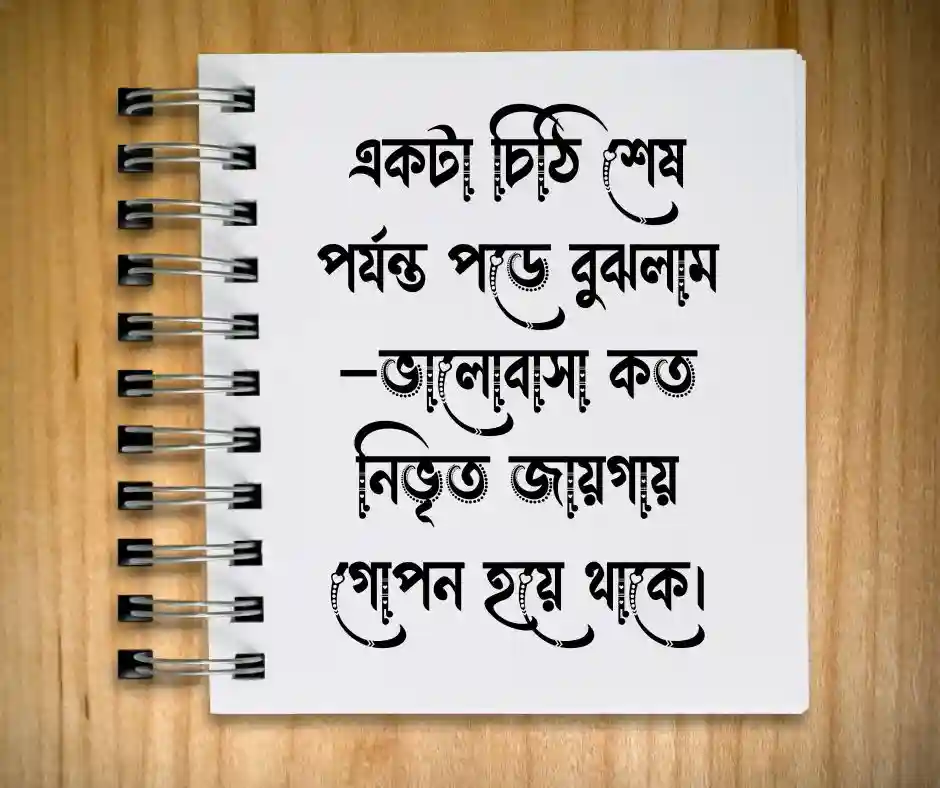 একটা চিঠি শেষ
পর্যন্ত পড়ে বুঝলাম
–ভালোবাসা কত
নিভৃত জায়গায়
গোপন হয়ে থাকে।